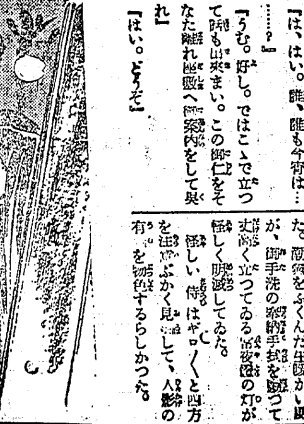 『は、はい。誰、誰も今宵は…
……？』
『うむ。好し。ではこゝで立つ
て話も出来まい。この御仁をそ
なた離れ座敷へ御案内をして呉
れ』
『はい。どうぞ』
た。雨気をふくんだ生暖かい風
が、御手洗の奉納手拭を翻つて
丈高く立つてゐる常夜燈の灯が
怪しく明滅してゐた。
怪しい侍はギロ〳〵と四方
を注意ぶかく見廻して、人影の
有無を物色するらしかつた。